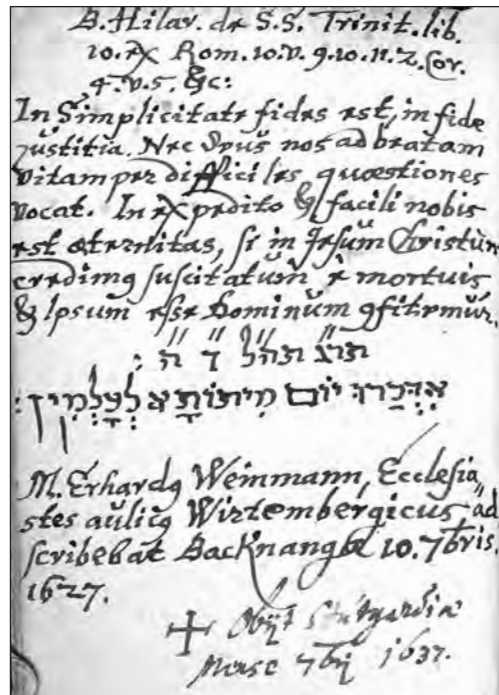 B. Hilar. de S.S. Trinit. lib.
10. ex Rom. 10. v. 9. 10. 11. 2. Cor.
4. v. 5. &c:
In Simplicitate fides est, in fide
iustitia. Nec Deus nos ad beatam
vitam per difficiles quæstiones
vocat. In expedito & facili nobis
est æternitas, si in Jesum Christum
credimq suscitatum è mortuis
& Ipsum esse Dominum qfitemur.
יום
M. Erhardq Weinmann, Ecclesia
stes aulicq Wirtembergicus ad
scribebat Backnangæ 10. 7bris.
1627.
+ Obijt Stutgardiæ
Mense 7bri 1637.